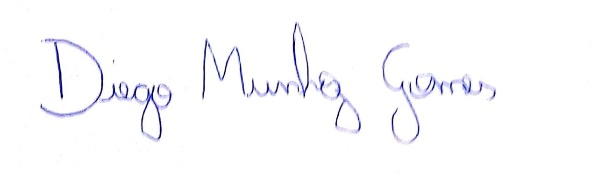 Diego Munhoz Gomes